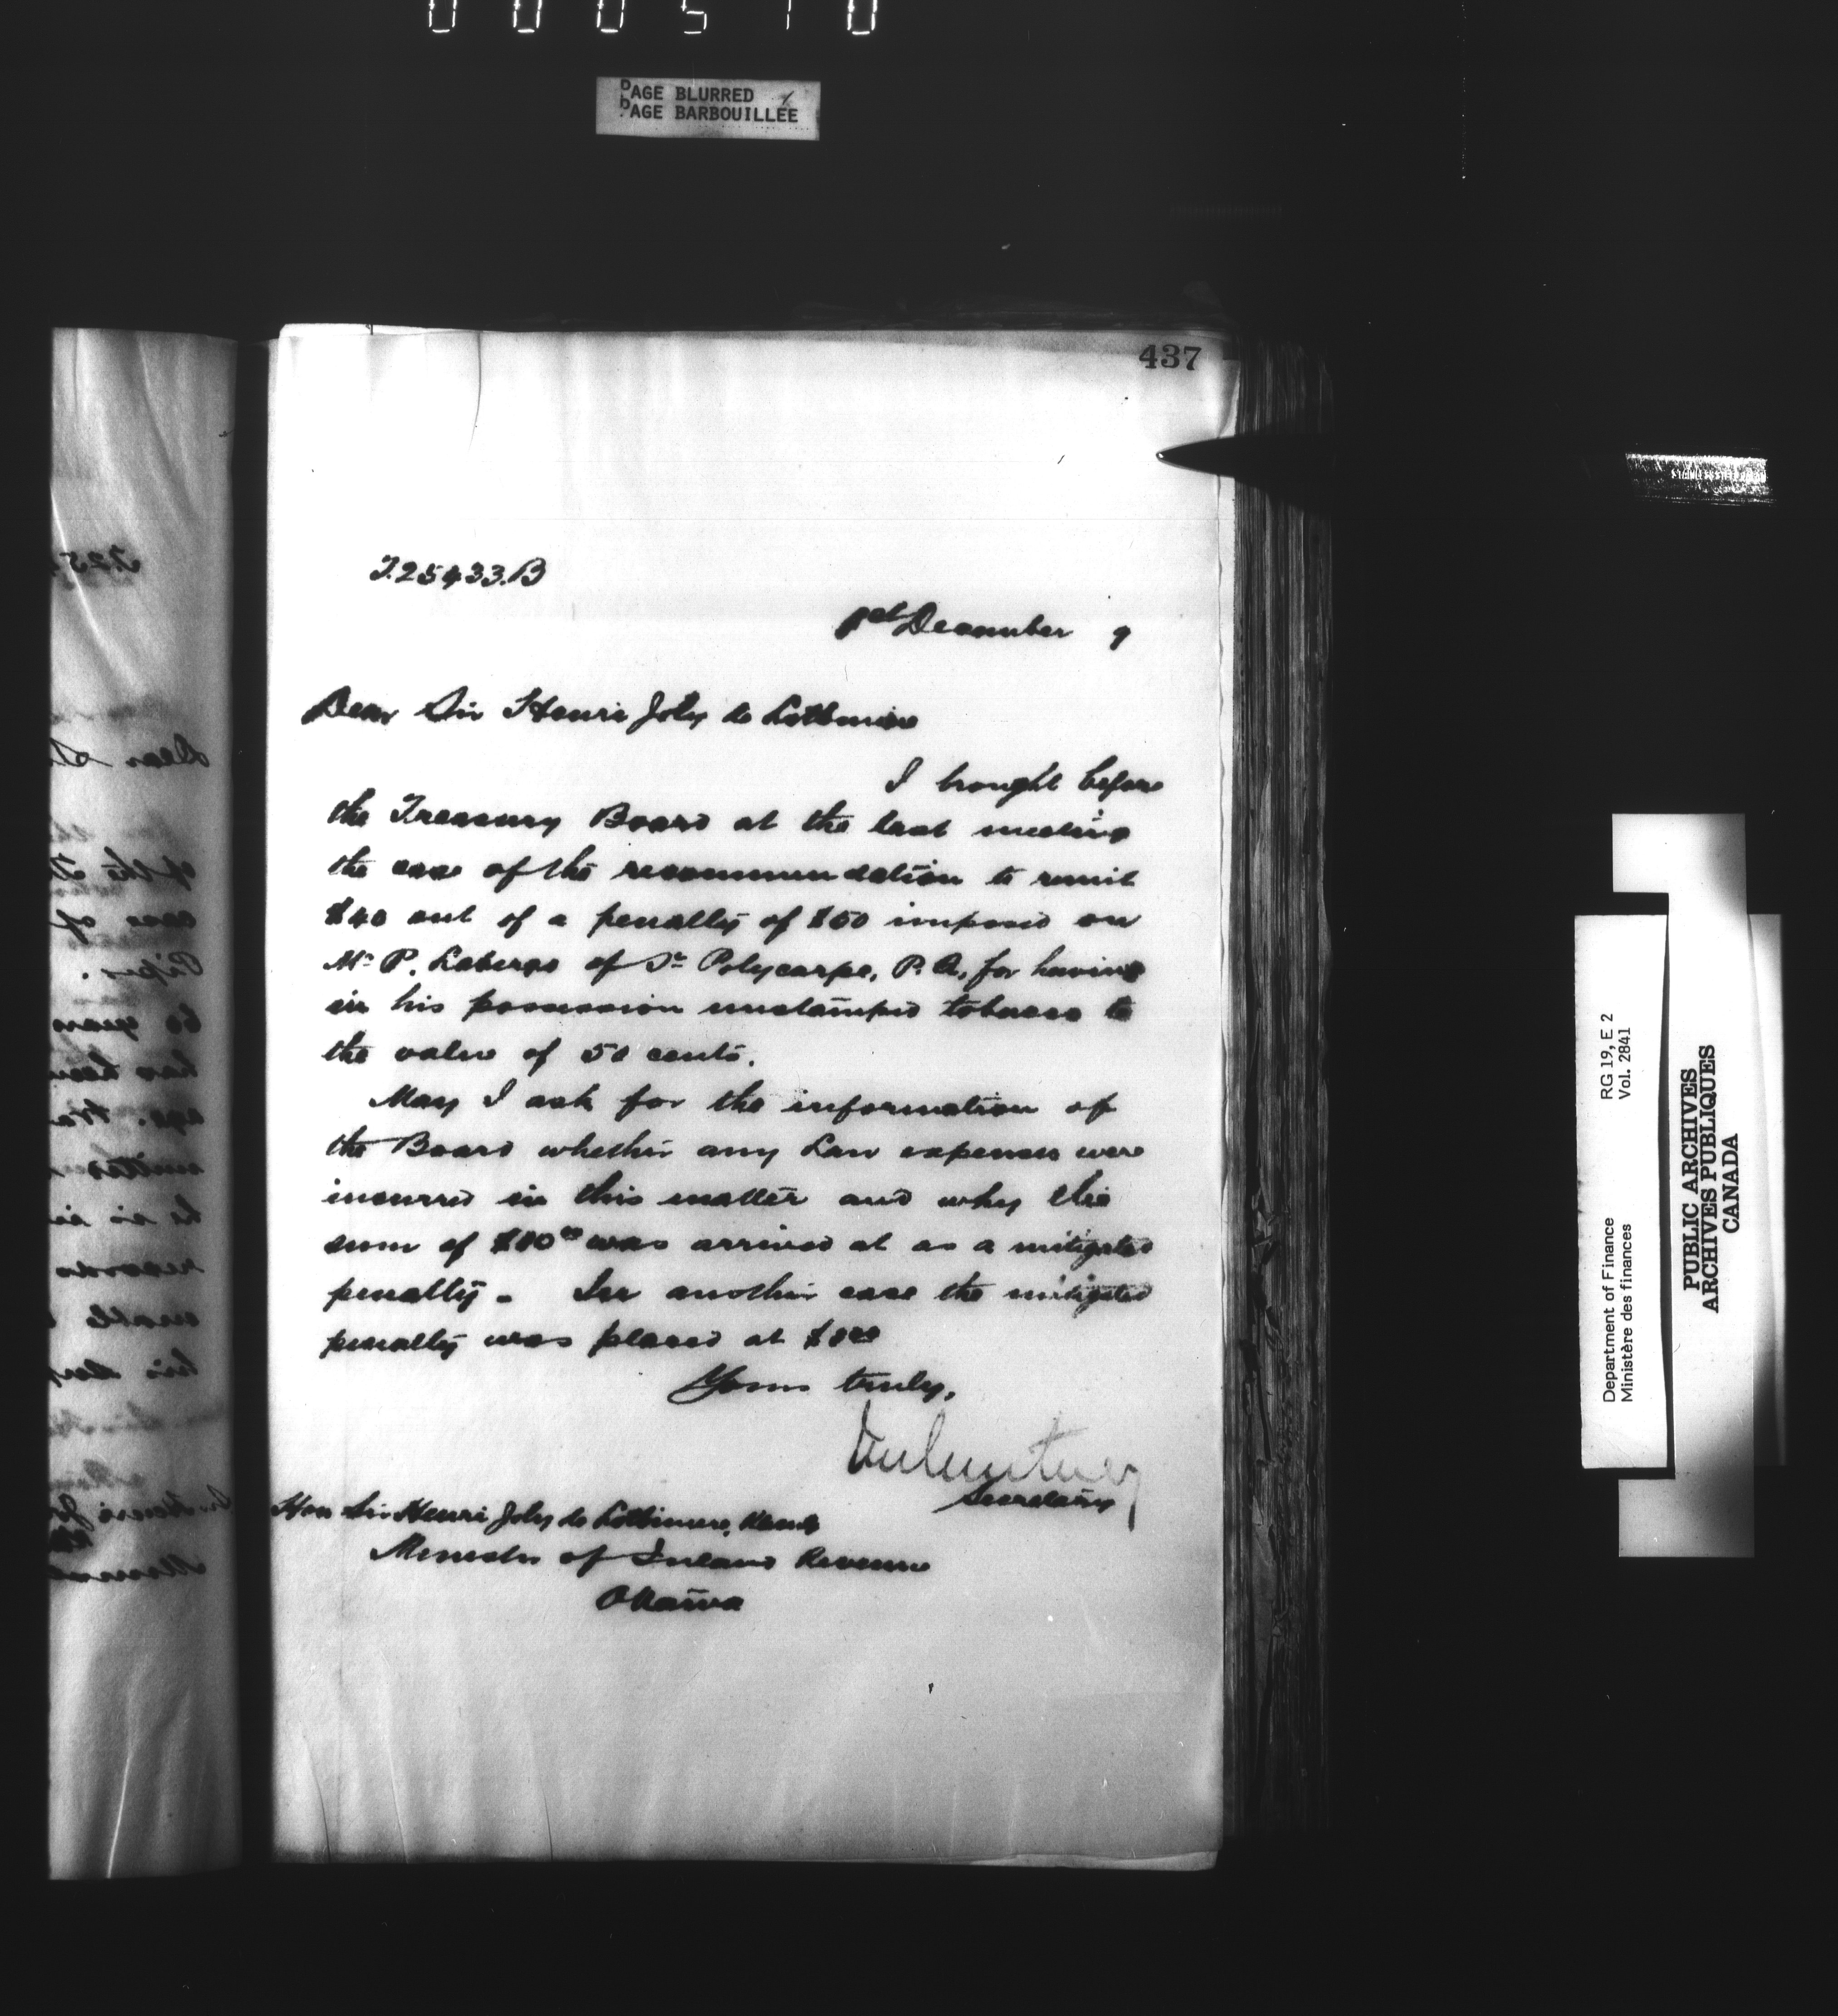 PAGE BLURRED
PAGE BARBOUILLÉE
437
T.25433.B
1st December 9
Dear Sir Henri Joly de Lotbiniere
I brought before
the Treasury Board at the last meeting
the case of the recommendation to remit
$40 out of a penalty of $50 imposed on
Mr P. Laberge of St Polycarpe, P.Q. for having
in his possession unstamped tobacco to
the value of 50 cents.
May I ask for the information of
the Board whether any Law expenses were
incurred in this matter and why the
sum of $10 00 was arrived at as a mitigated
penalty. In another case the mitigated
penalty was placed at
Yours truly,
Secretary
Hon Sir Henri Joly de Lotbiniere,
Minister of Inland Revenue
Ottawa
Department of Finance RG 19, E 2
Ministère des finances Vol. 2841
PUBLIC ARCHIVES
ARCHIVES PUBLIQUES
CANADA